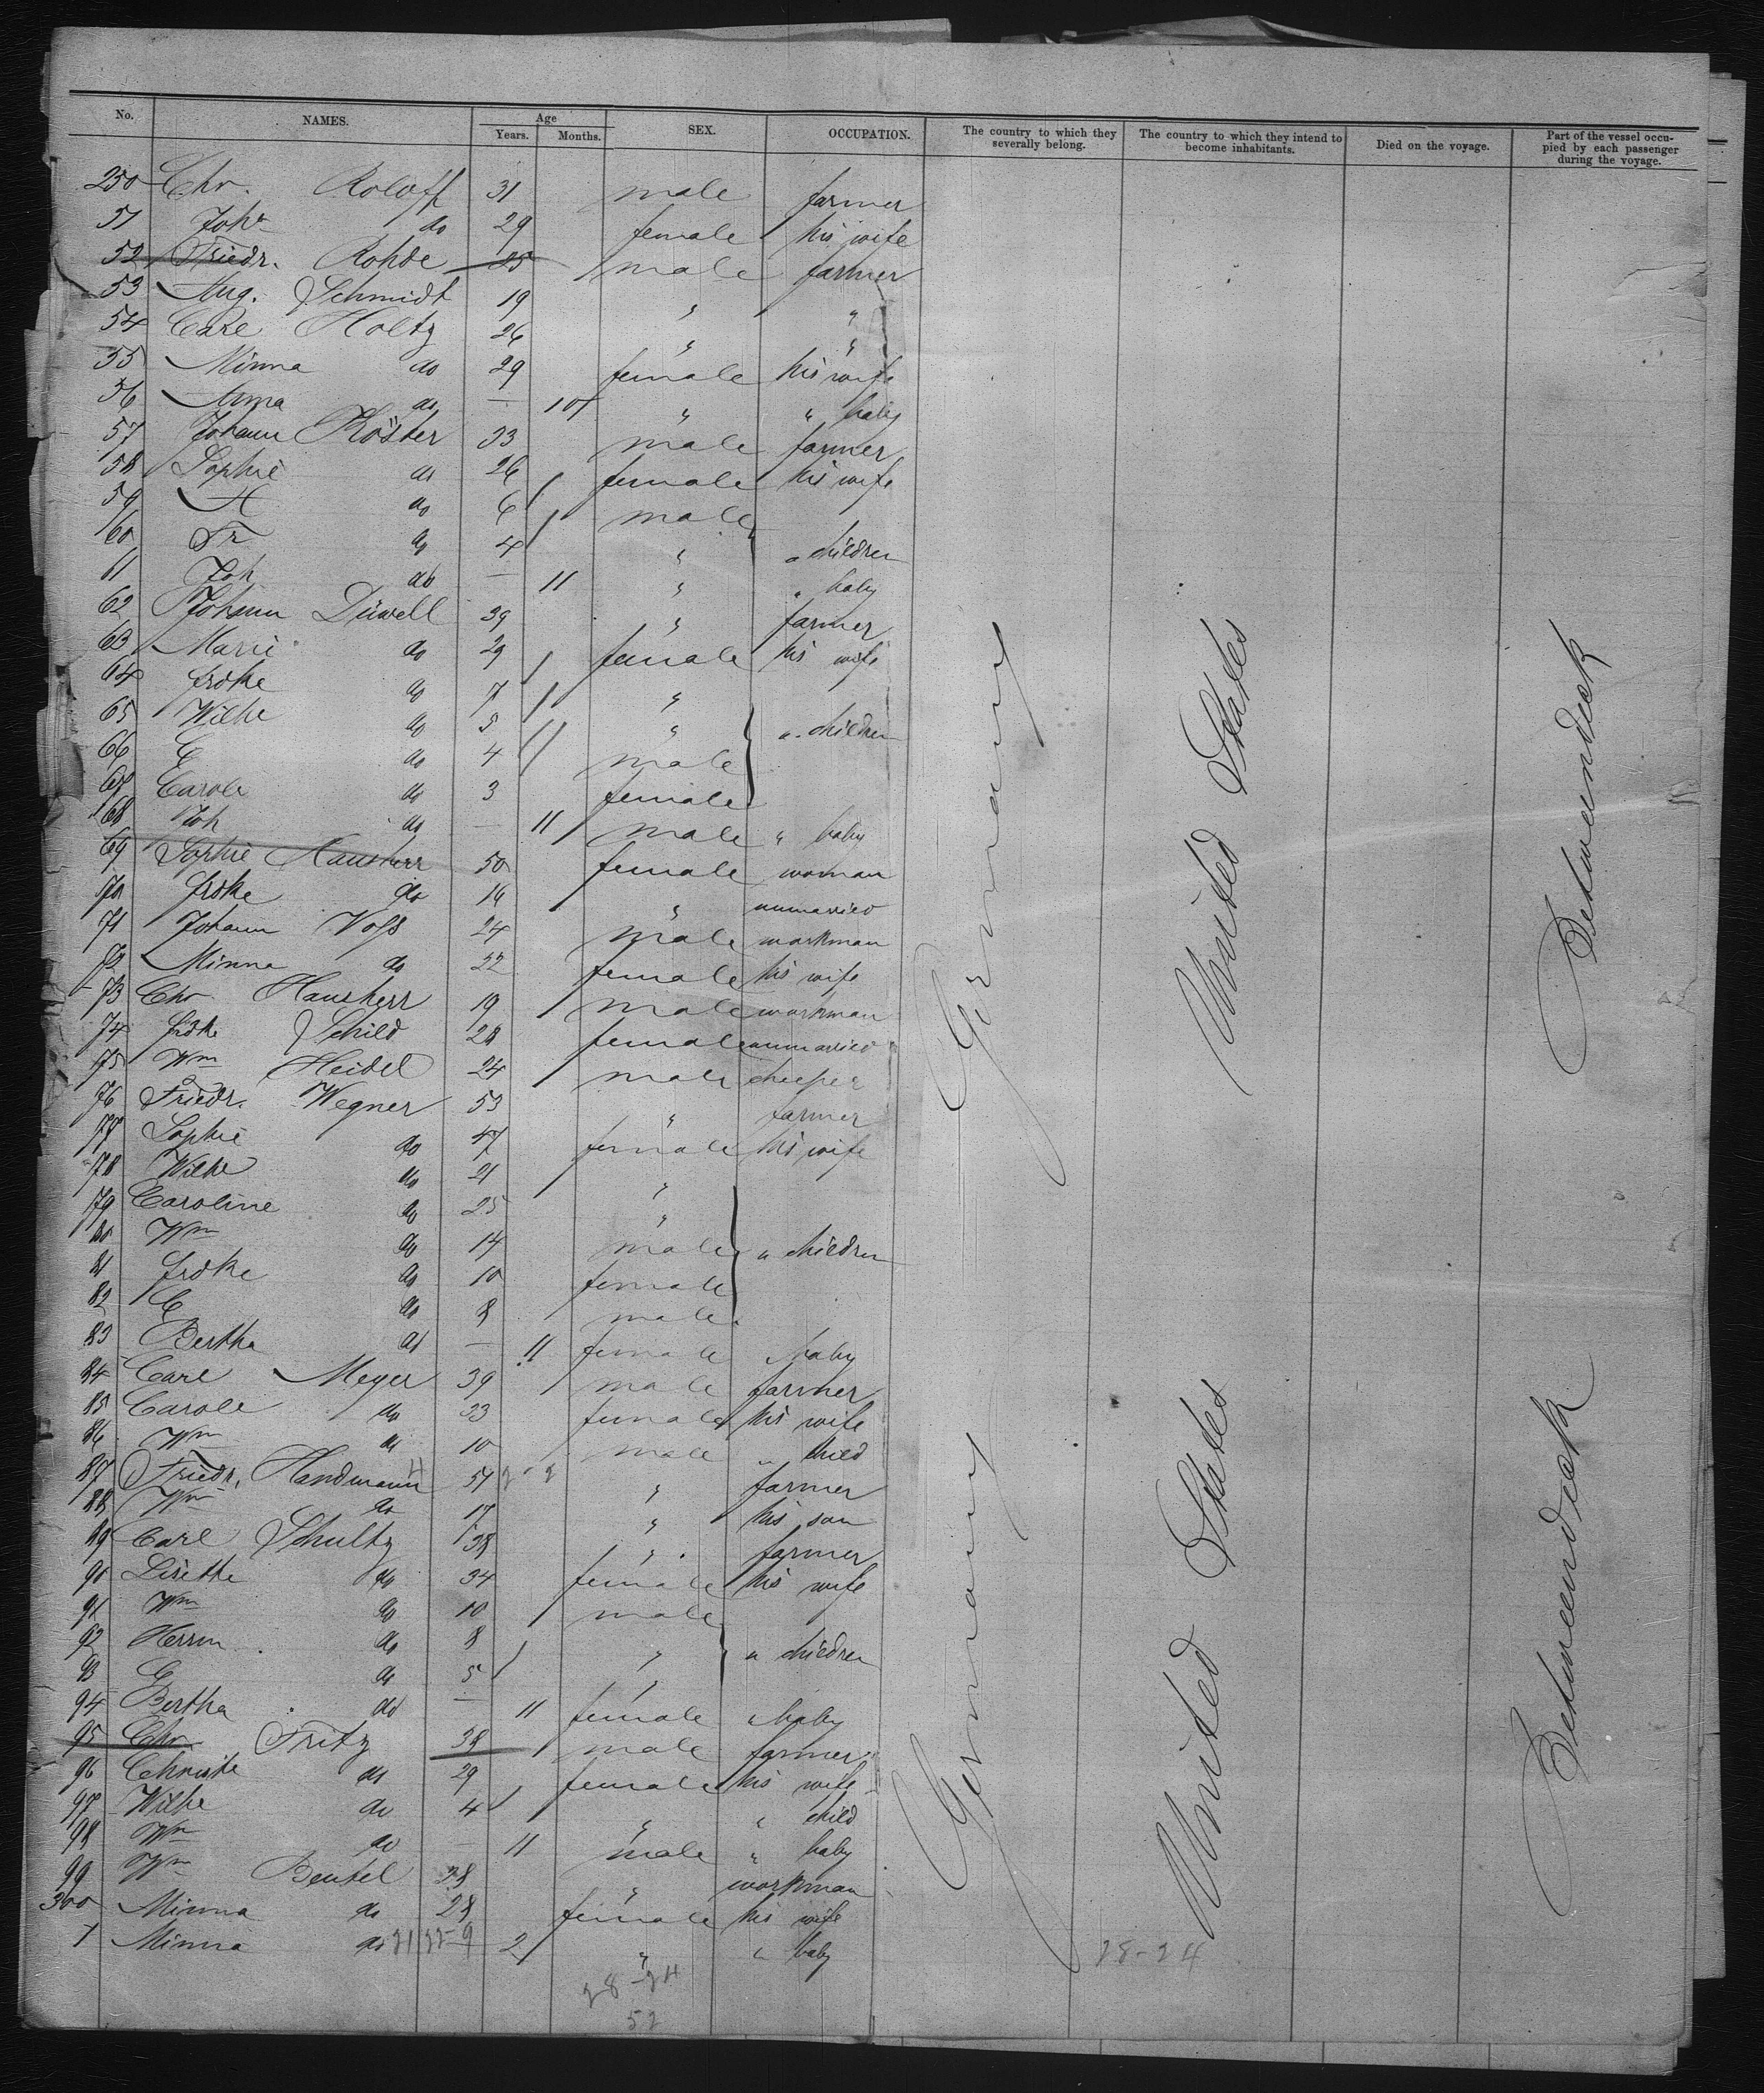 No. NAMES. Age Years. Months. SEX. OCCUPATION. The country to which they severally belong. The country to which they intend to become inhabitants. Died on the voyage. Part of the vessel occupied by each passenger during the voyage.
250 Chr. Roloff 31 male farmer
51 Joh. do 29 female his wife
52 Friedr. Rohde 25 male farmer
53 Aug. Schmidt 19 " "
54 Carl Holtz 26 " "
55 Minna do 29 female his wife
56 Anna do — 10 " " baby
57 Johann Köster 33 male farmer
58 Sophie do 26 female his wife
59 H do 6 male
60 Fr do 4 " " children
61 Joh do — 11 " " baby
62 Johann Düwell 39 " farmer
63 Marie do 29 female his wife
64 Frdke do 7 "
65 Wilhe do 5 " " children
66 C do 4 male
67 Carole do 3 female
68 Joh do — 11 male " baby
69 Sophie Hausherr 50 female woman
70 Frdke do 16 " unmarried
71 Johann Voß 24 male workman
72 Minna do 22 female his wife
73 Chr Hausherr 19 male workman
74 Frdke Schild 28 female unmarried
75 Wm Heidel 24 male
76 Friedr. Wegner 53 " farmer
77 Sophie do 47 female his wife
78 Wilhe do 21 "
79 Caroline do 25 "
80 Wm do 14 male " children
81 Frdke do 10 female
82 C do 8 male
83 Bertha do — 11 female " baby
84 Carl Meyer 39 male farmer
85 Carole do 33 female his wife
86 Wm do 10 male " child
87 Friedr. Handmann 51 " farmer
88 Wm do 17 " his son
89 Carl Schultz 38 " farmer
90 Lisette do 34 female his wife
91 Wm do 10 male
92 Herrm do 8 " " children
93 C do 5 "
94 Bertha do — 11 female " baby
95 Chr Fritz 38 male farmer
96 Christe do 29 female his wife
97 Wilhe do 4 " " child
98 Wm do — 11 male " baby
99 Wm Beutel 38 " workman
300 Minna do 28 female his wife
1 Minna do 2 " " baby
Germany
United States
Betweendeck
Germany
United States
Betweendeck
28-24
28-24
52